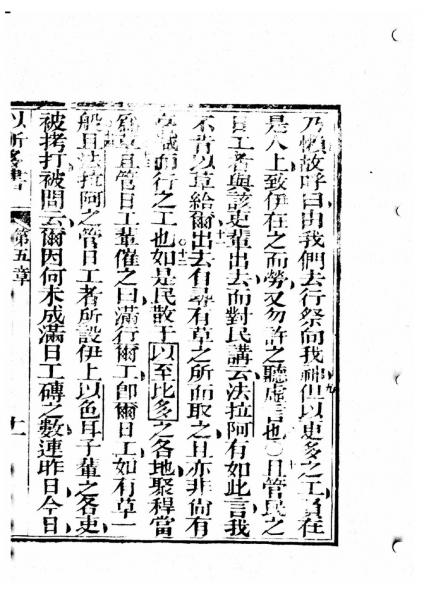 乃懶故呼曰由我們去行祭向我神但以更多之工負在
是人上致伊在之而勞又勿許之聽虛言也〇且管民之
日工者與該吏輩出去而對民講云法拉阿有如此言我
不肯以草給爾出去自尋有草之所而取之且亦非尚有
減而行之工也如是民散于以至比多之各地聚稈當
草且管日工輩催之曰滿行爾工卽爾日工如有草一
般且法拉阿之管日工者所設伊上以色耳子輩之各吏
被拷打被問云爾因何未成滿日工磚之數連昨日今日
第五章